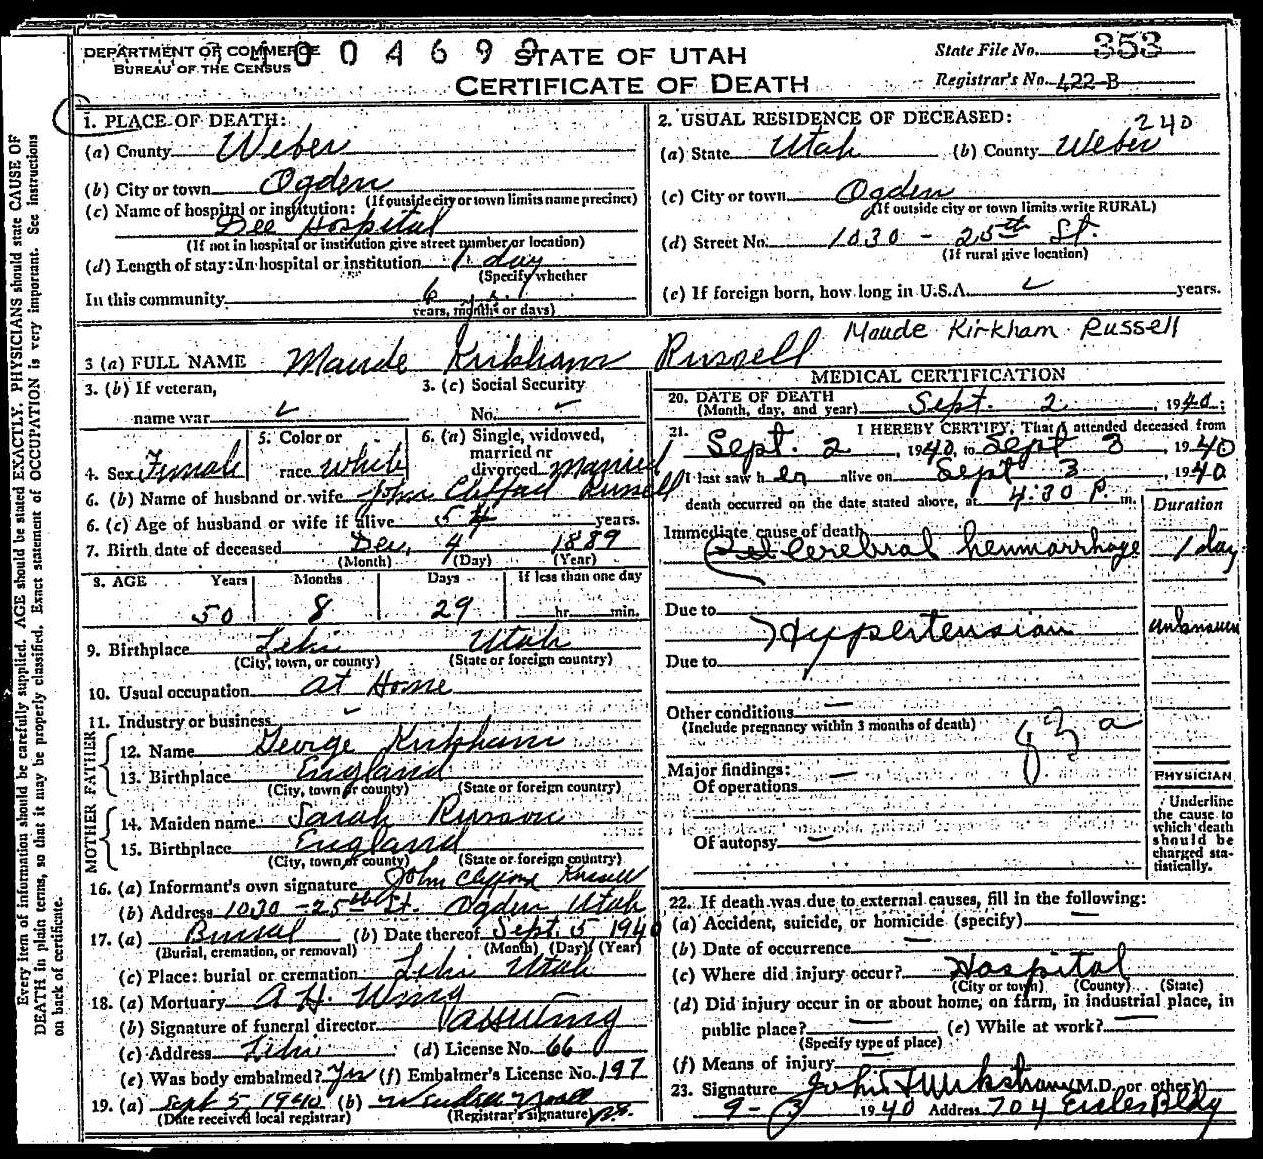 DEPARTMENT OF COMMERCE
BUREAU OF THE CENSUS
STATE OF UTAH
CERTIFICATE OF DEATH
State File No. 353
Registrar's No. 422-B
Every item of information should be carefully supplied. AGE should be stated EXACTLY. PHYSICIANS should state CAUSE OF
DEATH in plain terms, so that it may be properly classified. Exact statement of OCCUPATION is very important. See instructions
on back of certificate.
1. PLACE OF DEATH:
(a) County Weber
(b) City or town Ogden
(If outside city or town limits name precinct)
(c) Name of hospital or institution:
Dee Hospital
(If not in hospital or institution give street number or location)
(d) Length of stay: In hospital or institution 1 day
(Specify whether
In this community 6
years, months or days)
2. USUAL RESIDENCE OF DECEASED:
240
(a) State Utah (b) County Weber
(c) City or town Ogden
(If outside city or town limits write RURAL)
(d) Street No. 1030 - 25th St.
(If rural give location)
(e) If foreign born, how long in U.S.A. years.
3 (a) FULL NAME Maude Kirkham Russell
Maude Kirkham Russell
3. (b) If veteran,
name war
3. (c) Social Security
No.
4. Sex Female
5. Color or
race white
6. (a) Single, widowed,
married or
divorced married
6. (b) Name of husband or wife John Clifford Russell
6. (c) Age of husband or wife if alive 54 years.
7. Birth date of deceased Dec. 4 1889
(Month) (Day) (Year)
8. AGE Years Months Days If less than one day
50 8 29 hr. min.
9. Birthplace Lehi Utah
(City, town, or county) (State or foreign country)
10. Usual occupation at Home
11. Industry or business
FATHER
12. Name George Kirkham
13. Birthplace England
(City, town or county) (State or foreign country)
MOTHER
14. Maiden name Sarah Russon
15. Birthplace England
(City, town or county) (State or foreign country)
16. (a) Informant's own signature John Clifford Russell
(b) Address 1030 - 25th St. Ogden Utah
17. (a) Burial (b) Date thereof Sept. 5 1940
(Burial, cremation, or removal) (Month) (Day) (Year)
(c) Place: burial or cremation Lehi Utah
18. (a) Mortuary A H. Wing
(b) Signature of funeral director
(c) Address Lehi (d) License No. 66
(e) Was body embalmed? Yes (f) Embalmer's License No. 197
19. (a) Sept 5 1940 (b)
(Date received local registrar) (Registrar's signature)
MEDICAL CERTIFICATION
20. DATE OF DEATH
(Month, day, and year) Sept. 2, 1940;
21. I HEREBY CERTIFY, That I attended deceased from
Sept. 2, 1940, to Sept 3, 1940
I last saw her alive on Sept 3, 1940
death occurred on the date stated above, at 4:30 P. m.
Duration
Immediate cause of death
Cerebral hemmarrhage 1 day
Due to
Hypertension unknown
Due to
Other conditions
(Include pregnancy within 3 months of death)
83 a
Major findings:
Of operations
Of autopsy
PHYSICIAN
Underline
the cause to
which death
should be
charged sta-
tistically.
22. If death was due to external causes, fill in the following:
(a) Accident, suicide, or homicide (specify)
(b) Date of occurrence
(c) Where did injury occur? Hospital
(City or town) (County) (State)
(d) Did injury occur in or about home, on farm, in industrial place, in
public place? (e) While at work?
(Specify type of place)
(f) Means of injury
23. Signature (M.D. or other)
9-3 1940 Address 704 Eccles Bldg